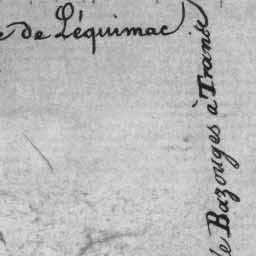 e de Léquimac
de Bazouges à Transe